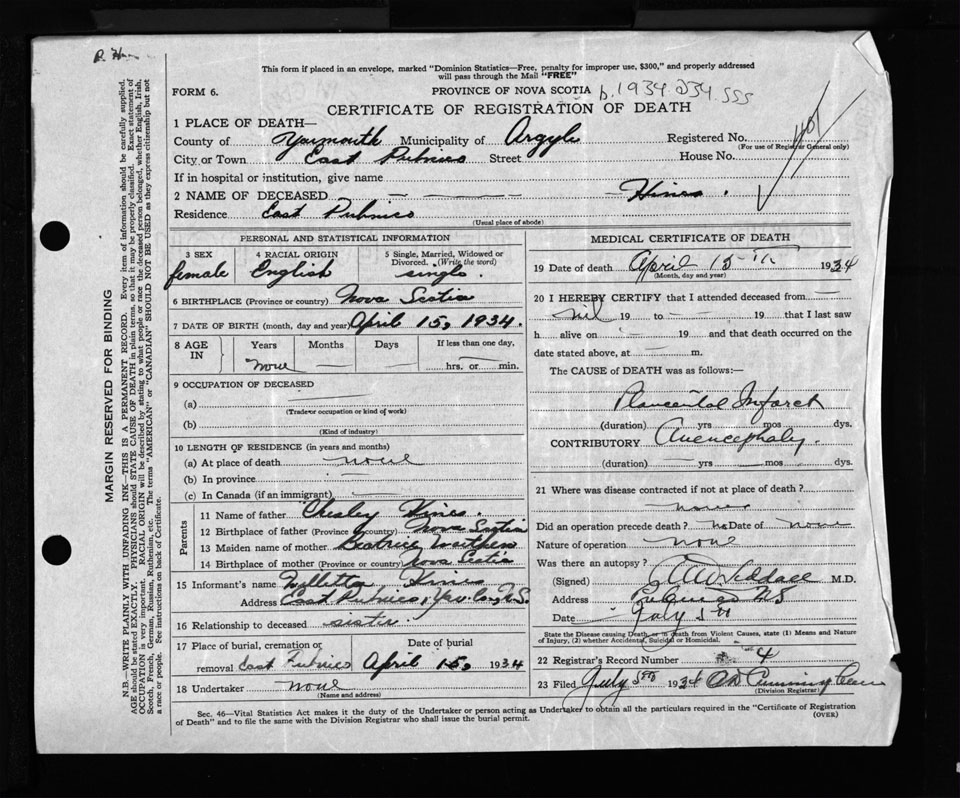 This form if placed in an envelope, marked "Dominion Statistics—Free, penalty for improper use, $300," and properly addressed
will pass through the Mail "FREE"
FORM 6.
PROVINCE OF NOVA SCOTIA
CERTIFICATE OF REGISTRATION OF DEATH
1 PLACE OF DEATH—
County of Yarmouth Municipality of Argyle Registered No.
(For use of Registrar General only)
City or Town East Pubnico Street House No.
If in hospital or institution, give name
2 NAME OF DECEASED — — Hines.
Residence East Pubnico
(Usual place of abode)
PERSONAL AND STATISTICAL INFORMATION
3 SEX female
4 RACIAL ORIGIN English
5 Single, Married, Widowed or
Divorced. (Write the word)
single.
6 BIRTHPLACE (Province or country) Nova Scotia
7 DATE OF BIRTH (month, day and year) April 15, 1934.
8 AGE IN Years Months Days If less than one day,
none — — hrs. or min.
9 OCCUPATION OF DECEASED
(a)
(Trade or occupation or kind of work)
(b)
(Kind of industry)
10 LENGTH OF RESIDENCE (in years and months)
(a) At place of death none
(b) In province
(c) In Canada (if an immigrant)
Parents
11 Name of father Chesley Hines
12 Birthplace of father (Province or country) Nova Scotia
13 Maiden name of mother Beatrice
14 Birthplace of mother (Province or country) Nova Scotia
15 Informant's name Hines
Address East Pubnico, Yar. Co., N.S.
16 Relationship to deceased sister.
17 Place of burial, cremation or Date of burial
removal East Pubnico April 1934
18 Undertaker none
(Name and address)
MEDICAL CERTIFICATE OF DEATH
19 Date of death April 15th 1934
(Month, day and year)
20 I HEREBY CERTIFY that I attended deceased from —
nil 19 to — — 19 that I last saw
h alive on — 19 and that death occurred on the
date stated above, at — m.
The CAUSE of DEATH was as follows:—
Placental Infarct
(duration) yrs mos dys.
CONTRIBUTORY Anencephaly.
(duration) — yrs — mos dys.
21 Where was disease contracted if not at place of death?
none
Did an operation precede death? no Date of none
Nature of operation none
Was there an autopsy?
(Signed) M.D.
Address Pubnico NS
Date July 5th
State the Disease causing Death, or in death from Violent Causes, state (1) Means and Nature
of Injury, (2) whether Accidental, Suicidal or Homicidal.
22 Registrar's Record Number 4
23 Filed July 5th 1934
(Division Registrar)
Sec. 46—Vital Statistics Act makes it the duty of the Undertaker or person acting as Undertaker to obtain all the particulars required in the "Certificate of Registration
of Death" and to file the same with the Division Registrar who shall issue the burial permit.
(OVER)
MARGIN RESERVED FOR BINDING
N.B.—WRITE PLAINLY WITH UNFADING INK—THIS IS A PERMANENT RECORD. Every item of information should be carefully supplied.
AGE should be stated EXACTLY. PHYSICIANS should STATE CAUSE OF DEATH in plain terms, so that it may be properly classified. Exact statement of
OCCUPATION is very important. RACIAL ORIGIN will be described by stating to what people or race the deceased person belonged, whether English, Irish,
Scotch, French, German, Russian, Ruthenian, etc. The terms "AMERICAN" or "CANADIAN" SHOULD NOT BE USED as they express citizenship but not
a race or people. See instructions on back of Certificate.